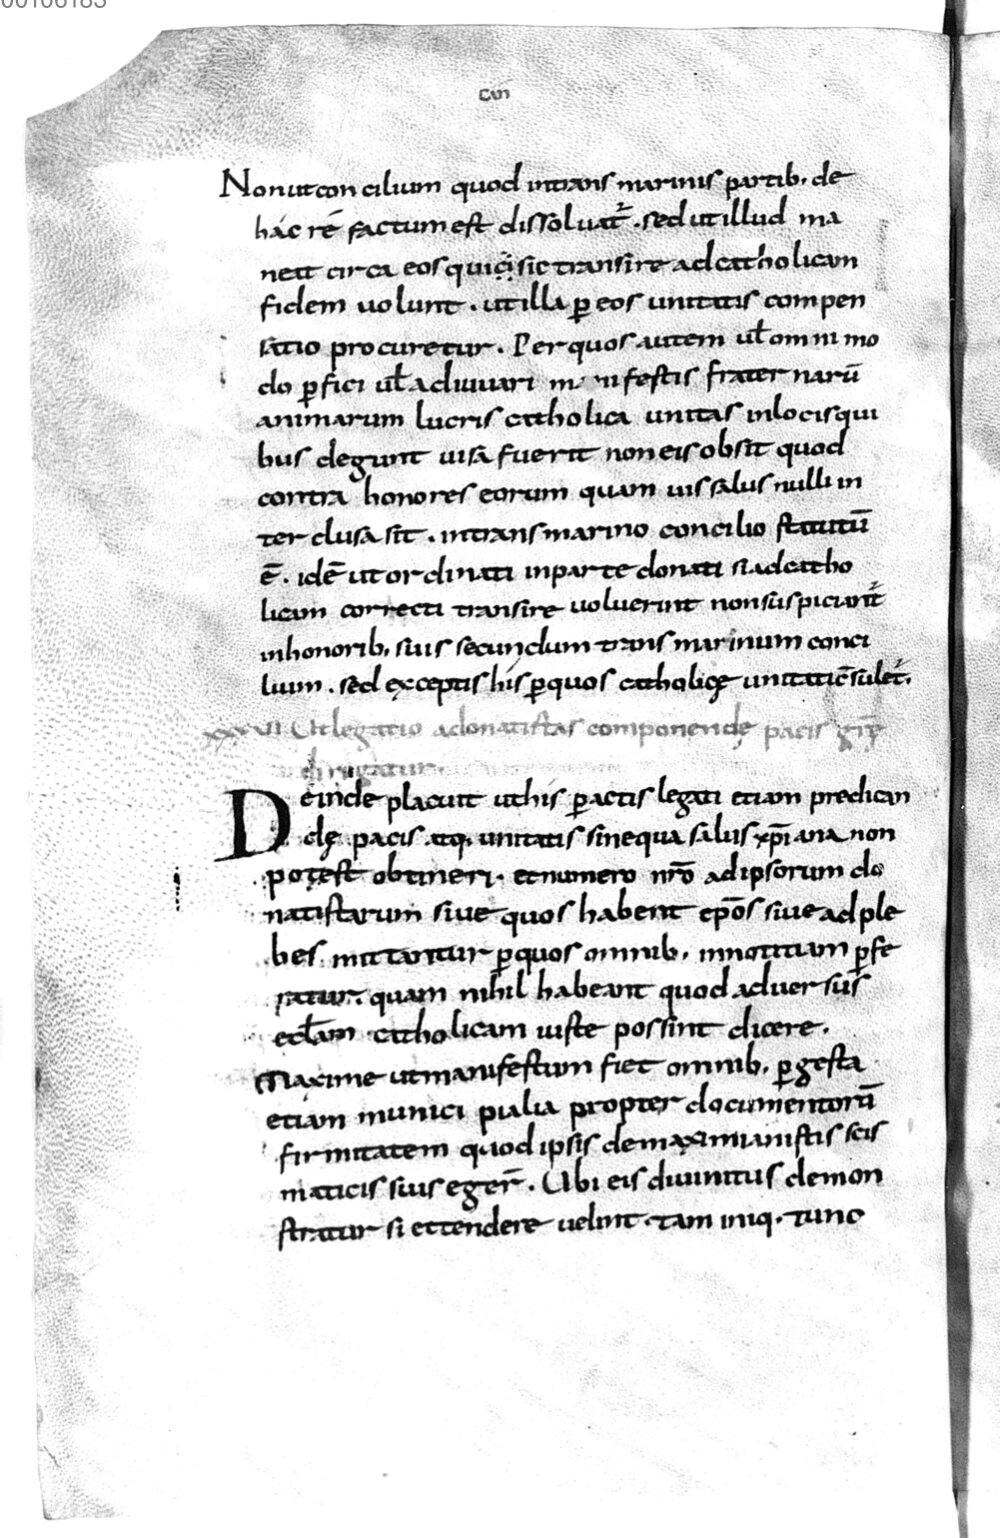 00106183
CVII
Non ut concilium quod intransmarinis partib; de
hac rē factum est dissoluat᷑. sed ut illud ma
neat circa eos qui sic transire ad catholicam
fidem uolunt. ut illa ꝑ eos unitatis compen
satio procuretur. Per quos autem uł omnimo
do ꝑfici uł adiuuari manifestis fraternarū
animarum lucris catholica unitas inlocis qui
bus degunt uisa fuerit non eis obsit quod
contra honores eorum quam uis salus nulli in
terclusa sit. intransmarino concilio statutū
ē. idē ut ordinati inparte donati si ad catho
licam correcti transire uoluerint non suspiciant᷑
inhonorib; suis secundum transmarinum conci
lium. sed exceptis his ꝑquos catholicę unitati c̄sulet᷑.
XXXVI Ut legatio adonatistas componendę pacis gr̄
dirigatur
Deinde placuit ut his ꝑactis legati etiam predican
dę pacis atq; unitatis sine qua salus xp̄iana non
potest obtineri. et numero nr̄o ad ipsorum do
natistarum siue quos habent ep̄os siue ad ple
bes mittantur ꝑquos omnib; innotitiam ꝑfe
ratur. quam nihil habeant quod aduersus
eclam catholicam iuste possint dicere.
Maxime ut manifestum fiet omnib; ꝑ gesta
etiam municipialia propter documentorū
firmitatem quod ipsis de maximianistis scis
maticis suis eger̄. Ubi eis diuinitus demon
stratur si attendere uelint. tam iniq; tunc